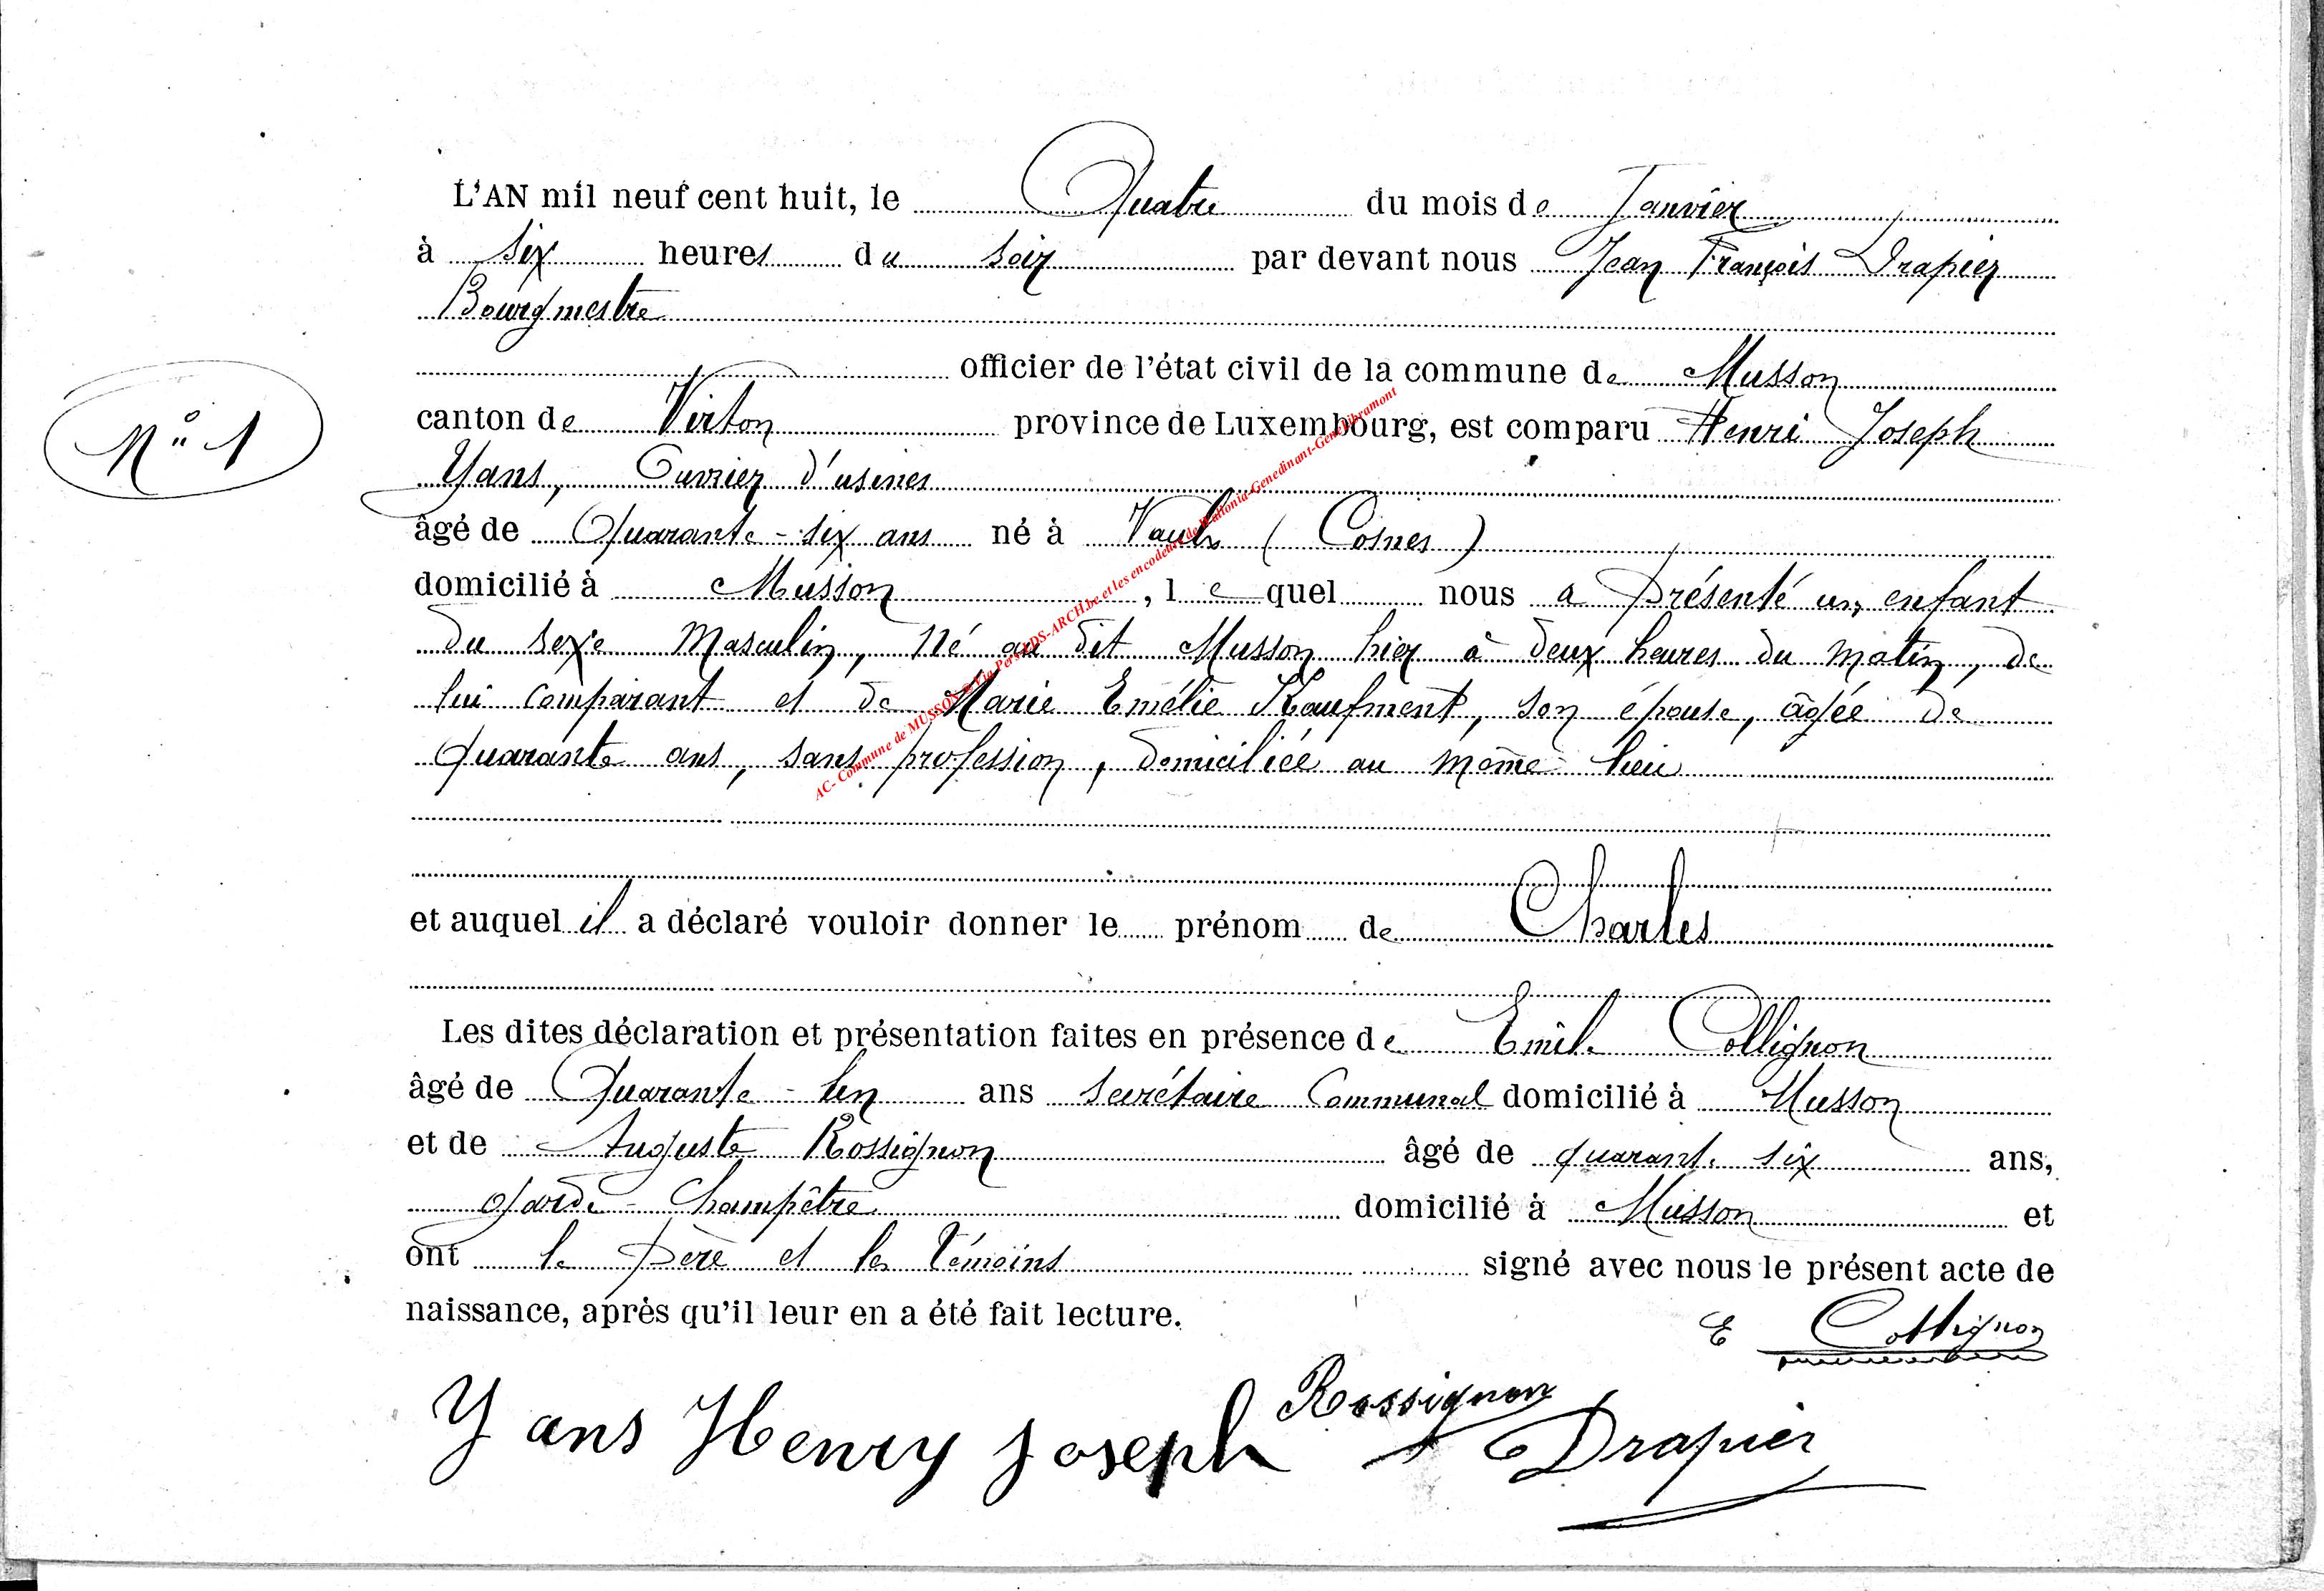 L'AN mil neuf cent huit, le Quatre du mois de Janvier
à six heures du soir par devant nous Jean François Drapier
Bourgmestre
officier de l'état civil de la commune de Musson
N° 1
canton de Virton province de Luxembourg, est comparu Henri Joseph
Yans, Ouvrier d'usines
âgé de Quarante-six ans né à Vaulx (Cosnes)
domicilié à Musson, lequel nous a présenté un enfant
du sexe Masculin, Né au dit Musson hier à deux heures du matin, de
lui comparant et de Marie Emélie Kaufment, son épouse, âgée de
Quarante ans, sans profession, domiciliée au même lieu
et auquel il a déclaré vouloir donner le prénom de Charles
Les dites déclaration et présentation faites en présence de Emile Collignon
âgé de Quarante-un ans secrétaire Communal domicilié à Musson
et de Auguste Rossignon âgé de quarante six ans,
garde-Champêtre domicilié à Musson et
ont le père et les témoins signé avec nous le présent acte de
naissance, après qu'il leur en a été fait lecture.
E Collignon
Yans Henry Joseph Rossignon Drapier
AC- Commune de MUSSON